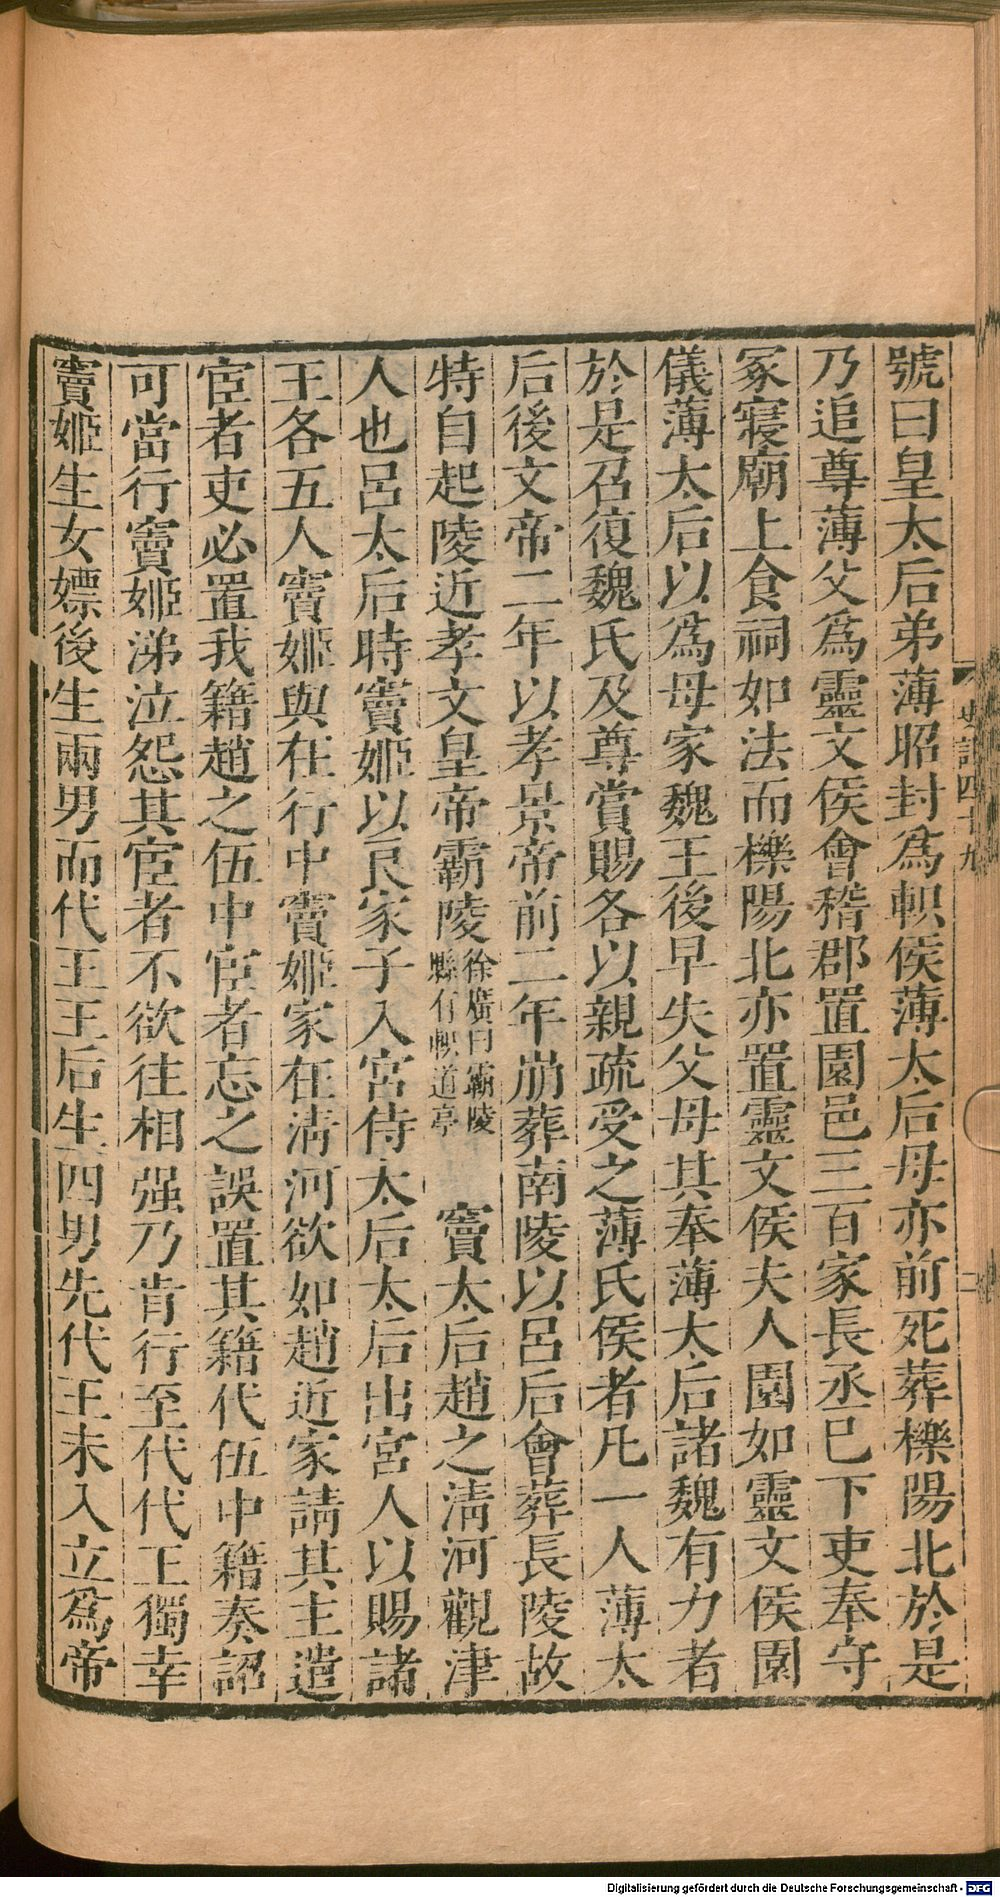 史記四十九
二
號曰皇太后弟薄昭封爲軹侯薄太后母亦前死葬櫟陽北於是
乃追尊薄父爲靈文侯會稽郡置園邑三百家長丞已下吏奉守
冢寢廟上食祠如法而櫟陽北亦置靈文侯夫人園如靈文侯園
儀薄太后以爲母家魏王後早失父母其奉薄太后諸魏有力者
於是召復魏氏及尊賞賜各以親疏受之薄氏侯者凡一人薄太
后後文帝二年以孝景帝前二年崩葬南陵以呂后會葬長陵故
特自起陵近孝文皇帝霸陵
徐廣曰霸陵
縣有軹道亭
竇太后趙之淸河觀津
人也呂太后時竇姬以良家子入宮侍太后太后出宮人以賜諸
王各五人竇姬與在行中竇姬家在淸河欲如趙近家請其主遣
宦者吏必置我籍趙之伍中宦者忘之誤置其籍代伍中籍奏詔
可當行竇姬涕泣怨其宦者不欲往相强乃肯行至代代王獨幸
竇姬生女嫖後生兩男而代王王后生四男先代王未入立爲帝
Digitalisierung gefördert durch die Deutsche Forschungsgemeinschaft - DFG